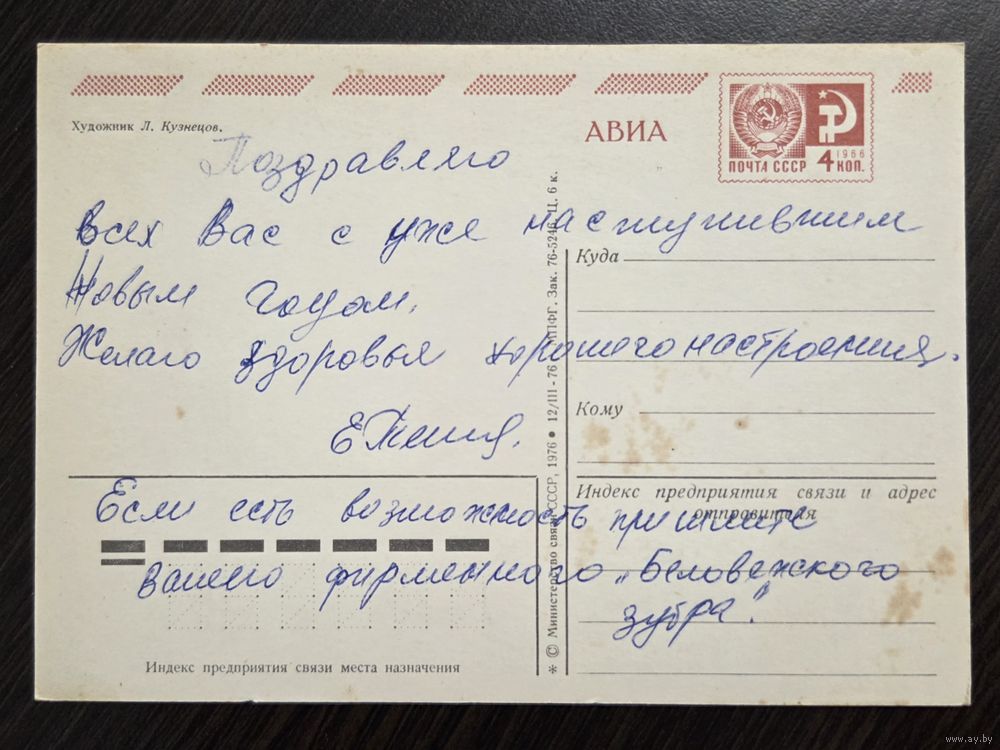 Художник Л. Кузнецов.
АВИА
ПОЧТА СССР 4 КОП. 1966
Поздравляю
всех Вас с уже наступившим
Новым годом.
Желаю здоровья хорошего настроения.
Куда
Кому
Индекс предприятия связи и адрес
отправителя
Если есть возможность пришлите
вашего фирменного „Беловежского
зубра".
Индекс предприятия связи места назначения
* © Министерство связи СССР, 1976 • 12/III-76 МПФГ. Зак. 76-5246. Ц. 6 к.
www.ay.by